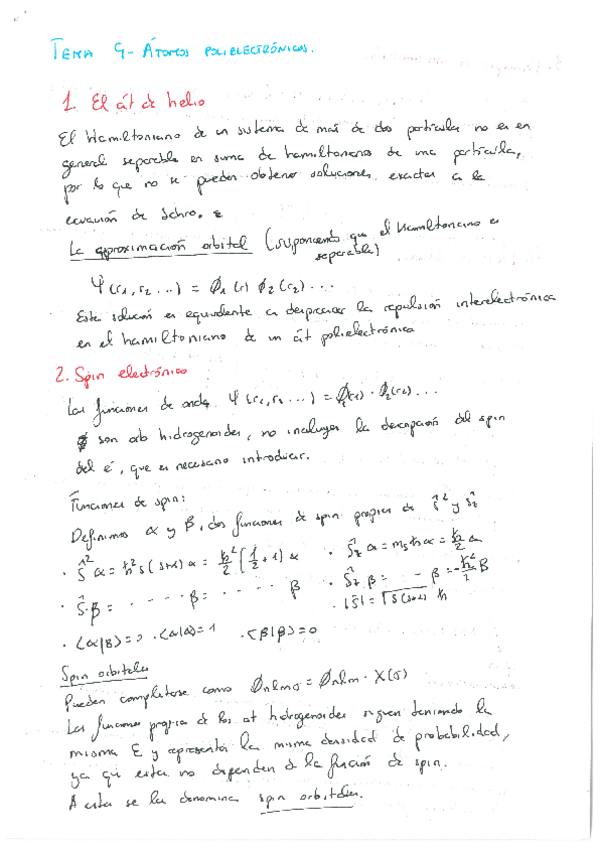 TEMA 9- ÁTOMOS POLIELECTRÓNICOS.
1. El át de helio
El Hamiltoniano de un sistema de más de dos partícula no es en
general separable en suma de hamiltonianos de una partícula,
por lo que no se pueden obtener soluciones exactas a la
ecuación de Schro.
La aproximación orbital (suponiendo que el Hamiltoniano es
separable)
Ψ(r₁,r₂ ...) = ϕ₁(r) ϕ₂(r₂)...
Esta solución es equivalente a despreciar la repulsión interelectrónica
en el hamiltoniano de un át polielectrónico
2. Spin electrónico
Las funciones de onda Ψ(r₁,r₂ ...) = ϕ₁(r₁) · ϕ₂(r₂)...
son orb hidrogenoides, no incluyen la descripción del spin
del e⁻, que es necesario introducir.
Funciones de spin:
Definimos α y β, dos funciones de spin propias de ŝ² y ŝz
· Ŝ² α = ħ² s(s+1) α = ħ²/2 (1/2 + 1) α · Ŝz α = ms ħ α = ħ/2 α
· Ŝ·β = - - - - β = - - - - β · Ŝz β = - - β = -ħ/2 β
· |S| = √s(s+1) ħ
· <α|β> = 0 · <α|α> = 1 · <β|β> = 0
Spin orbitales
Pueden completarse como ϕnlmσ = ϕnlm · X(σ)
Las funciones propias de los at hidrogenoides siguen teniendo la
misma E y representan la misma densidad de probabilidad,
ya que estas no dependen d la función de spin.
A estas se las denomina spin orbitales.